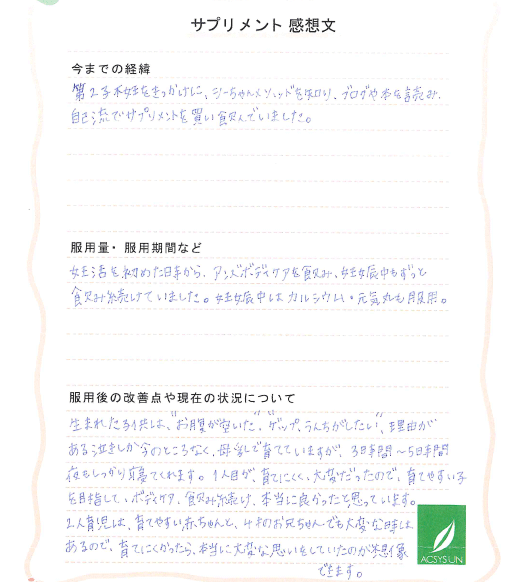 サプリメント 感想文
今までの経緯
第2子不妊をきっかけに、ジーちゃんメソッドを知り、ブログや本を読み、
自己流でサプリメントを買い飲んでいました。
服用量・服用期間など
妊活を初めた時から、アンズボディケアを飲み、妊娠中もずっと
飲み続けていました。妊娠中はカルシウム・元気丸も服用。
服用後の改善点や現在の状況について
生まれた子供は、"お腹が空いた"、"ゲップ、うんちがしたい"、理由が
ある泣きしか今のところなく、母乳で育てていますが、3時間〜5時間
夜もしっかり寝てくれます。1人目が、育てにくく、大変だったので、育てやすい子
を目指して、ボディケア、飲み続け、本当に良かったと思っています。
2人育児は、育てやすい赤ちゃんと、4才のお兄ちゃんでも大変な時は
あるので、育てにくかったら、本当に大変な思いをしていたのが想像
できます。
ACSYSUN